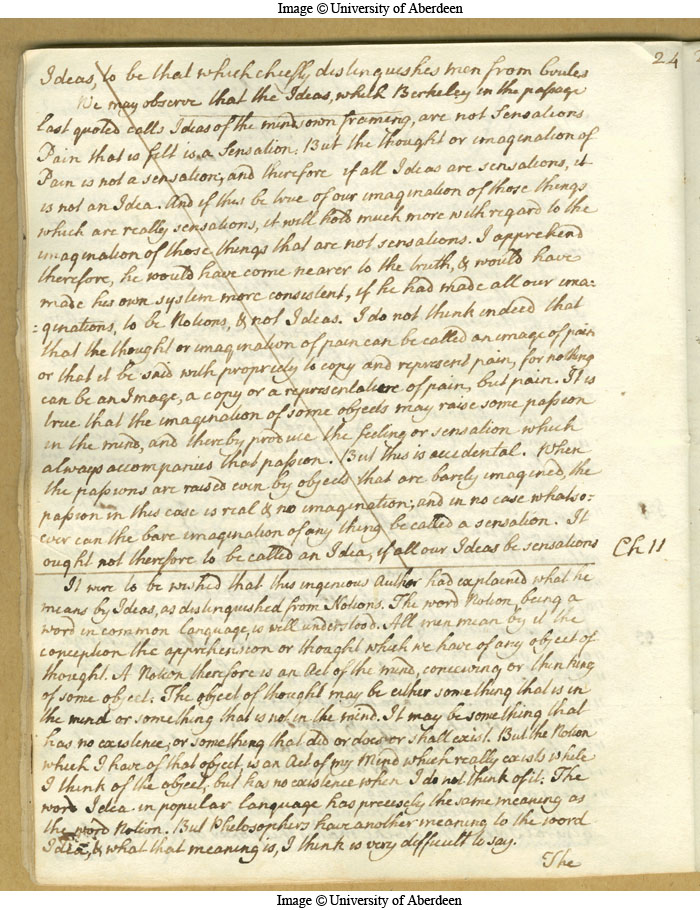 Image © University of Aberdeen
24
Ideas, to be that which chiefly distinguishes men from brutes
We may observe that the Ideas, which Berkeley in the passage
last quoted calls Ideas of the mind's own framing, are not Sensations
Pain that is felt is a Sensation; But the thought or imagination of
Pain is not a sensation; and therefore if all Ideas are sensations, it
is not an Idea. And if this be true of our imagination of those things
which are really sensations, it will hold much more with regard to the
imagination of those things that are not sensations. I apprehend
therefore, he would have come nearer to the truth, & would have
made his own system more consistent, if he had made all our ima:
:ginations, to be Notions, & not Ideas. I do not think indeed that
that the thought or imagination of pain can be called an image of pain
or that it be said with propriety to copy and represent pain, for nothing
can be an Image, a copy or a representative of pain, but pain. It is
true that the imagination of some objects may raise some passion
in the mind, and thereby produce the feeling or sensation which
always accompanies that passion. But this is accidental. When
the passions are raised even by objects that are barely imagined, the
passion in this case is real & no imagination; and in no case whatso:
ever can the bare imagination of any thing be called a sensation. It
ought not therefore to be called an Idea, if all our Ideas be sensations
Ch 11
It were to be wished that this ingenious Author had explained what he
means by Ideas, as distinguished from Notions. The word Notion, being a
word in common language, is well understood. All men mean by it the
conception the apprehension or thought which we have of any object of
thought. A Notion therefore is an Act of the mind, conceiving or thinking
of some object. The object of thought may be either something that is in
the mind or something that is not in the mind. It may be something that
has no existence, or something that did or does or shall exist. But the Notion
which I have of that object, is an Act of my Mind which really exists while
I think of the object, but has no existence when I do not think of it. The
word Idea in popular language has precisely the same meaning as
the word Notion. But Philosophers have another meaning to the word
Idea, & what that meaning is, I think is very difficult to say.
The
Image © University of Aberdeen